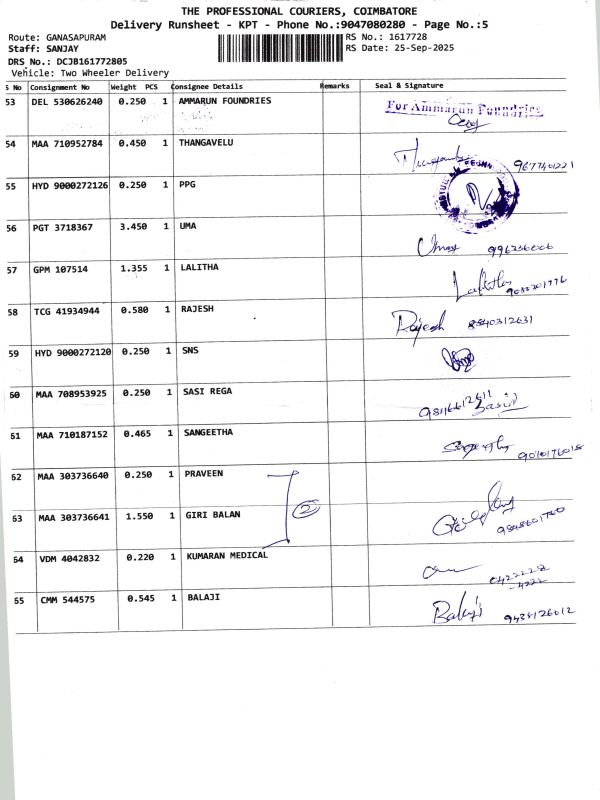 THE PROFESSIONAL COURIERS, COIMBATORE
Delivery Runsheet - KPT - Phone No.:9047080280 - Page No.:5
Route: GANASAPURAM
RS No.: 1617728
Staff: SANJAY
RS Date: 25-Sep-2025
DRS No.: DCJB161772805
Vehicle: Two Wheeler Delivery
S No Consignment No Weight PCS Consignee Details Remarks Seal & Signature
53 DEL 530626240 0.250 1 AMMARUN FOUNDRIES For Ammarun Foundries
54 MAA 710952784 0.450 1 THANGAVELU
55 HYD 9000272126 0.250 1 PPG
56 PGT 3718367 3.450 1 UMA
57 GPM 107514 1.355 1 LALITHA Lalitha
58 TCG 41934944 0.580 1 RAJESH Rajesh 8540312631
59 HYD 9000272120 0.250 1 SNS
60 MAA 708953925 0.250 1 SASI REGA
61 MAA 710187152 0.465 1 SANGEETHA
62 MAA 303736640 0.250 1 PRAVEEN
2
63 MAA 303736641 1.550 1 GIRI BALAN
64 VDM 4042832 0.220 1 KUMARAN MEDICAL
65 CMM 544575 0.545 1 BALAJI Balaji 9438126012